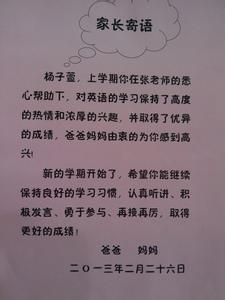 家长寄语
杨子萱，上学期你在张老师的悉
心帮助下，对英语的学习保持了高度
的热情和浓厚的兴趣，并取得了优异
的成绩，爸爸妈妈由衷的为你感到高
兴!
新的学期开始了，希望你能继续
保持良好的学习习惯，认真听讲、积
极发言、勇于参与、再接再厉，取得
更好的成绩!
爸爸 妈妈
二〇一三年二月二十六日